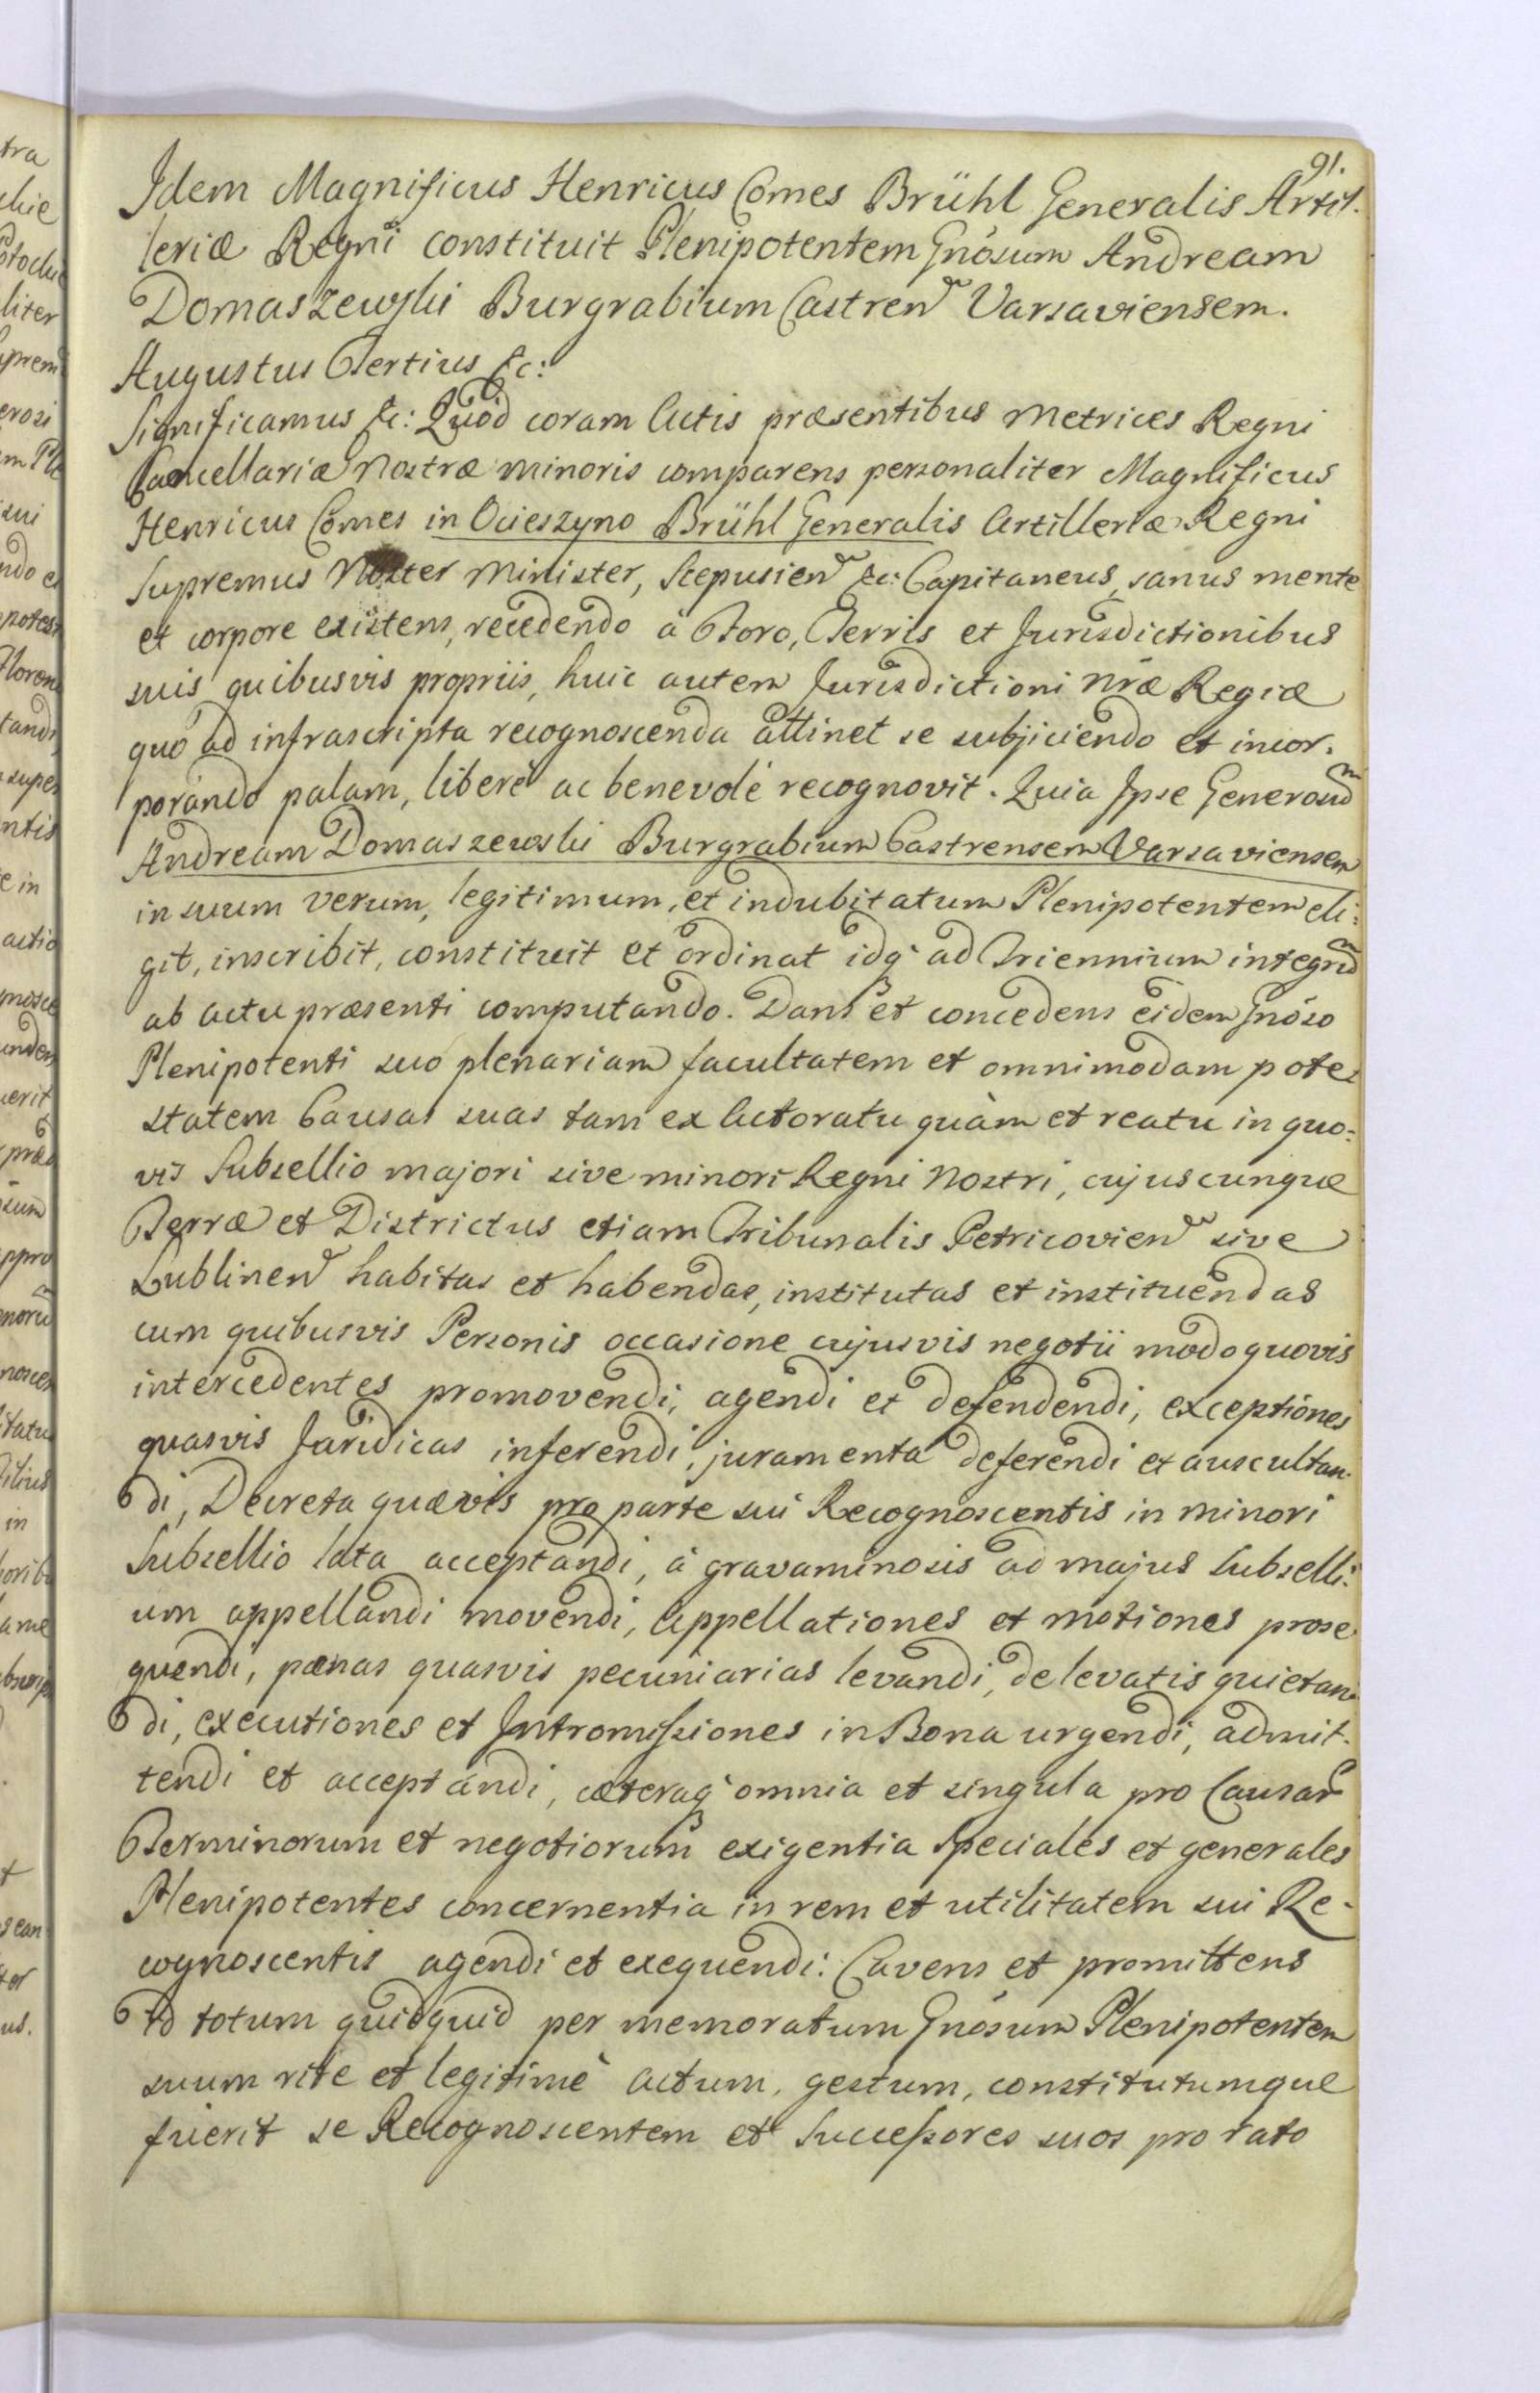 91.
Idem Magnificus Henricus Comes Brühl Generalis Artil-
leriæ Regni constituit Plenipotentem Gnosum Andream
Domaszewski Burgrabium Castren Varsaviensem.
Augustus Tertius &c:
Significamus &c: Quod coram Actis præsentibus Metrices Regni
Cancellariæ Nostræ minoris comparens personaliter Magnificus
Henricus Comes in Ocieszyno Brühl Generalis Artilleriæ Regni
Supremus Noster Minister, Scepusien &c: Capitaneus, sanus mente
et corpore existens, recedendo à Foro, Terris et Jurisdictionibus
suis quibusvis propriis, huic autem Jurisdictioni Nræ Regiæ
quo ad infrascripta recognoscenda attinet se subjiciendo et incor-
porando palam, liberè ac benevolè recognovit. Quia Ipse Generosum
Andream Domaszewski Burgrabium Castrensem Varsaviensem
in suum verum, legitimum, et indubitatum Plenipotentem eli-
git, inscribit, constituit et ordinat idq ad Triennium integrum
ab actu præsenti computando. Dans et concedens eidem Gnoso
Plenipotenti suo plenariam facultatem et omnimodam pote-
statem Causas suas tam ex Actoratu quàm et reatu in quo-
vis Subsellio majori sive minori Regni Nostri, cujuscunque
Terræ et Districtus etiam Tribunalis Petricovien sive
Lublinen habitas et habendas, institutas et instituendas
cum quibusvis Personis occasione cujusvis negotii modo quovis
intercedentes promovendi, agendi et defendendi, exceptiones
quasvis Juridicas inferendi, juramenta deferendi et auscultan-
di, Decreta quævis pro parte sui Recognoscentis in minori
Subsellio lata acceptandi, à gravaminosis ad majus Subselli-
um appellandi movendi, appellationes et motiones prose-
quendi, pænas quasvis pecuniarias levandi, de levatis quietan-
di, executiones et Intromissiones in Bona urgendi, admit-
tendi et acceptandi, cæteraq omnia et singula pro Causar
Terminorum et negotiorum exigentia Speciales et generales
Plenipotentes concernentia in rem et utilitatem sui Re-
cognoscentis agendi et exequendi: Cavens et promittens
Id totum quidquid per memoratum Gnosum Plenipotentem
suum rite et legitimè actum, gestum, constitutumque
fuerit se Recognoscentem et Successores suos pro rato